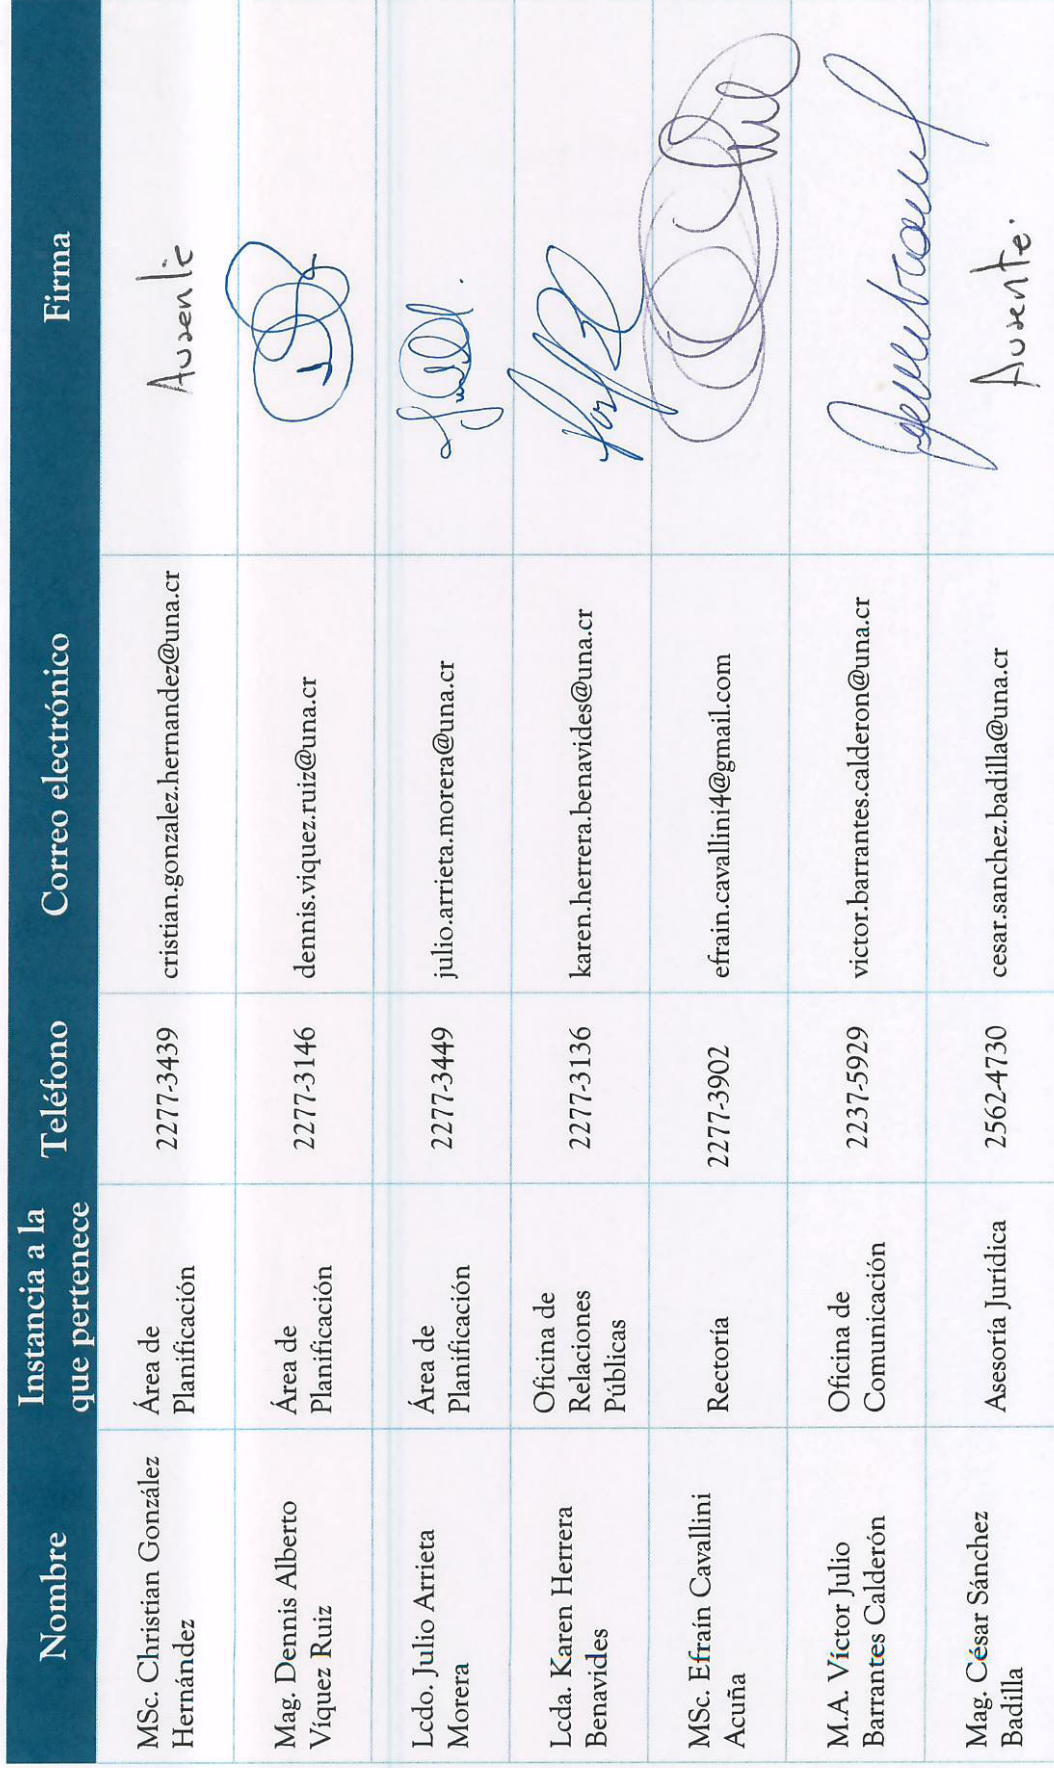 Nombre
Instancia a la
que pertenece
Teléfono
Correo electrónico
Firma
MSc. Christian González
Hernández
Área de
Planificación
2277-3439
cristian.gonzalez.hernandez@una.cr
Ausente
Mag. Dennis Alberto
Víquez Ruiz
Área de
Planificación
2277-3146
dennis.viquez.ruiz@una.cr
Lcdo. Julio Arrieta
Morera
Área de
Planificación
2277-3449
julio.arrieta.morera@una.cr
Lcda. Karen Herrera
Benavides
Oficina de
Relaciones
Públicas
2277-3136
karen.herrera.benavides@una.cr
MSc. Efraín Cavallini
Acuña
Rectoría
2277-3902
efrain.cavallini4@gmail.com
M.A. Víctor Julio
Barrantes Calderón
Oficina de
Comunicación
2237-5929
victor.barrantes.calderon@una.cr
Mag. César Sánchez
Badilla
Asesoría Jurídica
2562-4730
cesar.sanchez.badilla@una.cr
Ausente.